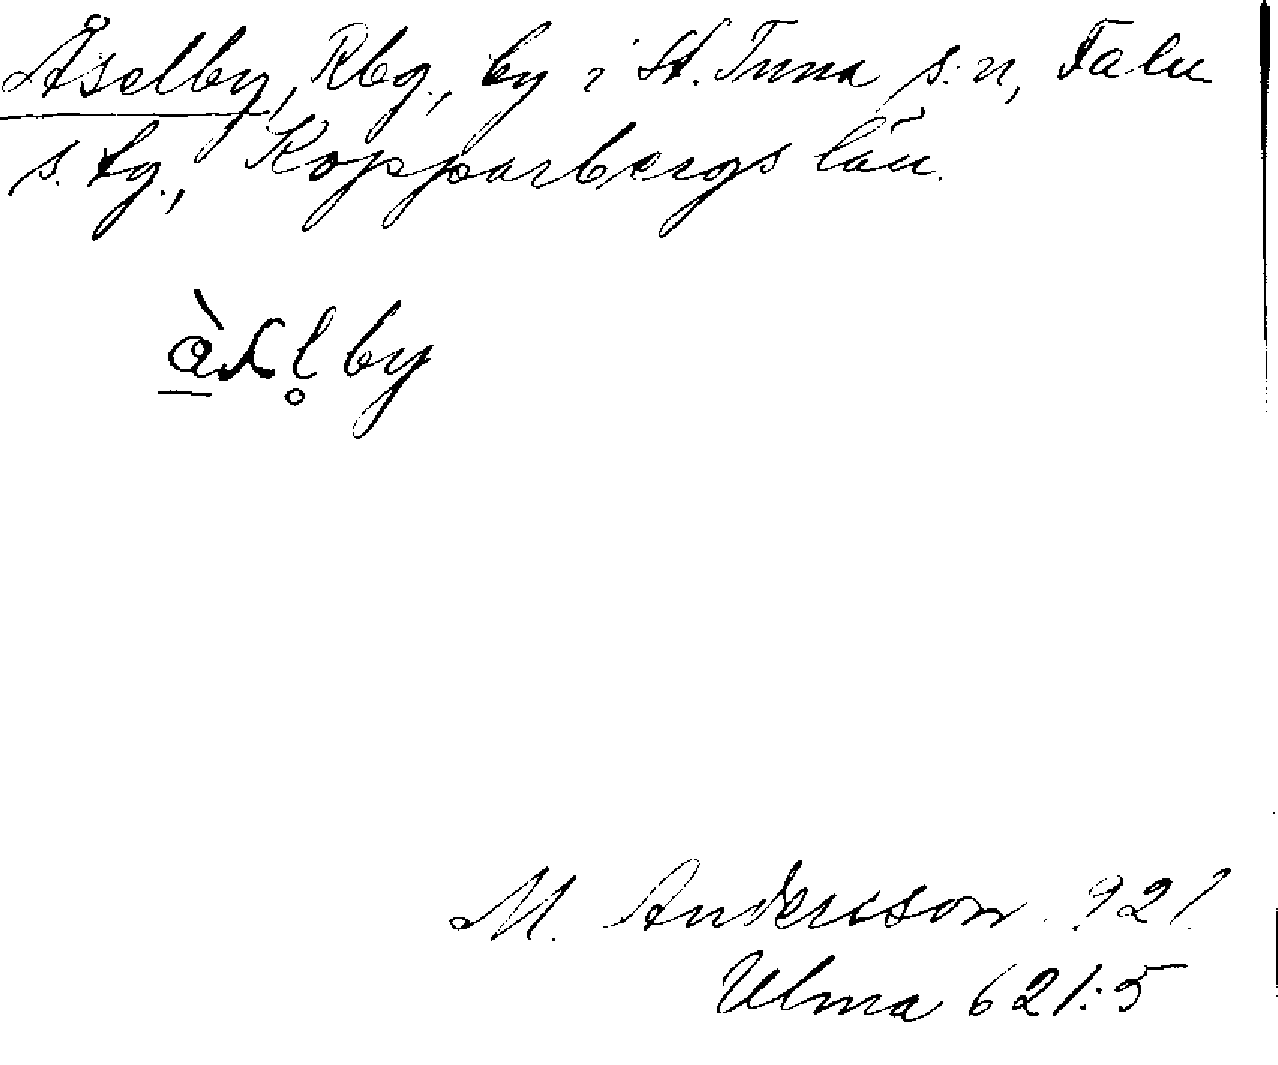 Åselby, Rbg., by i St. Tuna s:n, Falu
s. tg., Kopparbergs län.
by
M. Andersson. 921.
Ulma 621:5